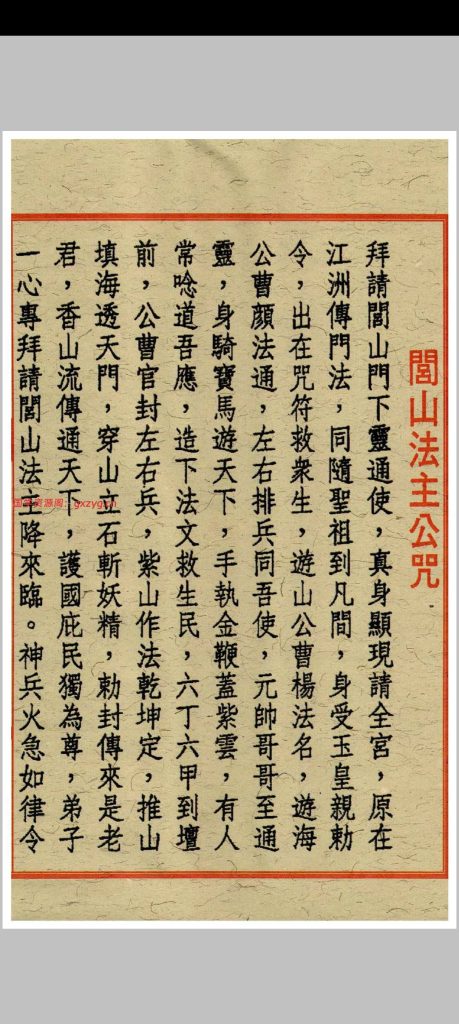 閭山法主公咒
拜請閭山門下靈通使，真身顯現請全宮，原在
江洲傳門法，同隨聖祖到凡間，身受玉皇親勅
令，出在咒符救衆生，遊山公曹楊法名，遊海
公曹顏法通，左右排兵同吾使，元帥哥哥至通
靈，身騎寶馬遊天下，手執金鞭蓋紫雲，有人
常唸道吾應，造下法文救生民，六丁六甲到壇
前，公曹官封左右兵，紫山作法乾坤定，推山
填海透天門，穿山立石斬妖精，勅封傳來是老
君，香山流傳通天下，護國庇民獨為尊，弟子
一心專拜請閭山法主降來臨。神兵火急如律令
gxzyg.cn